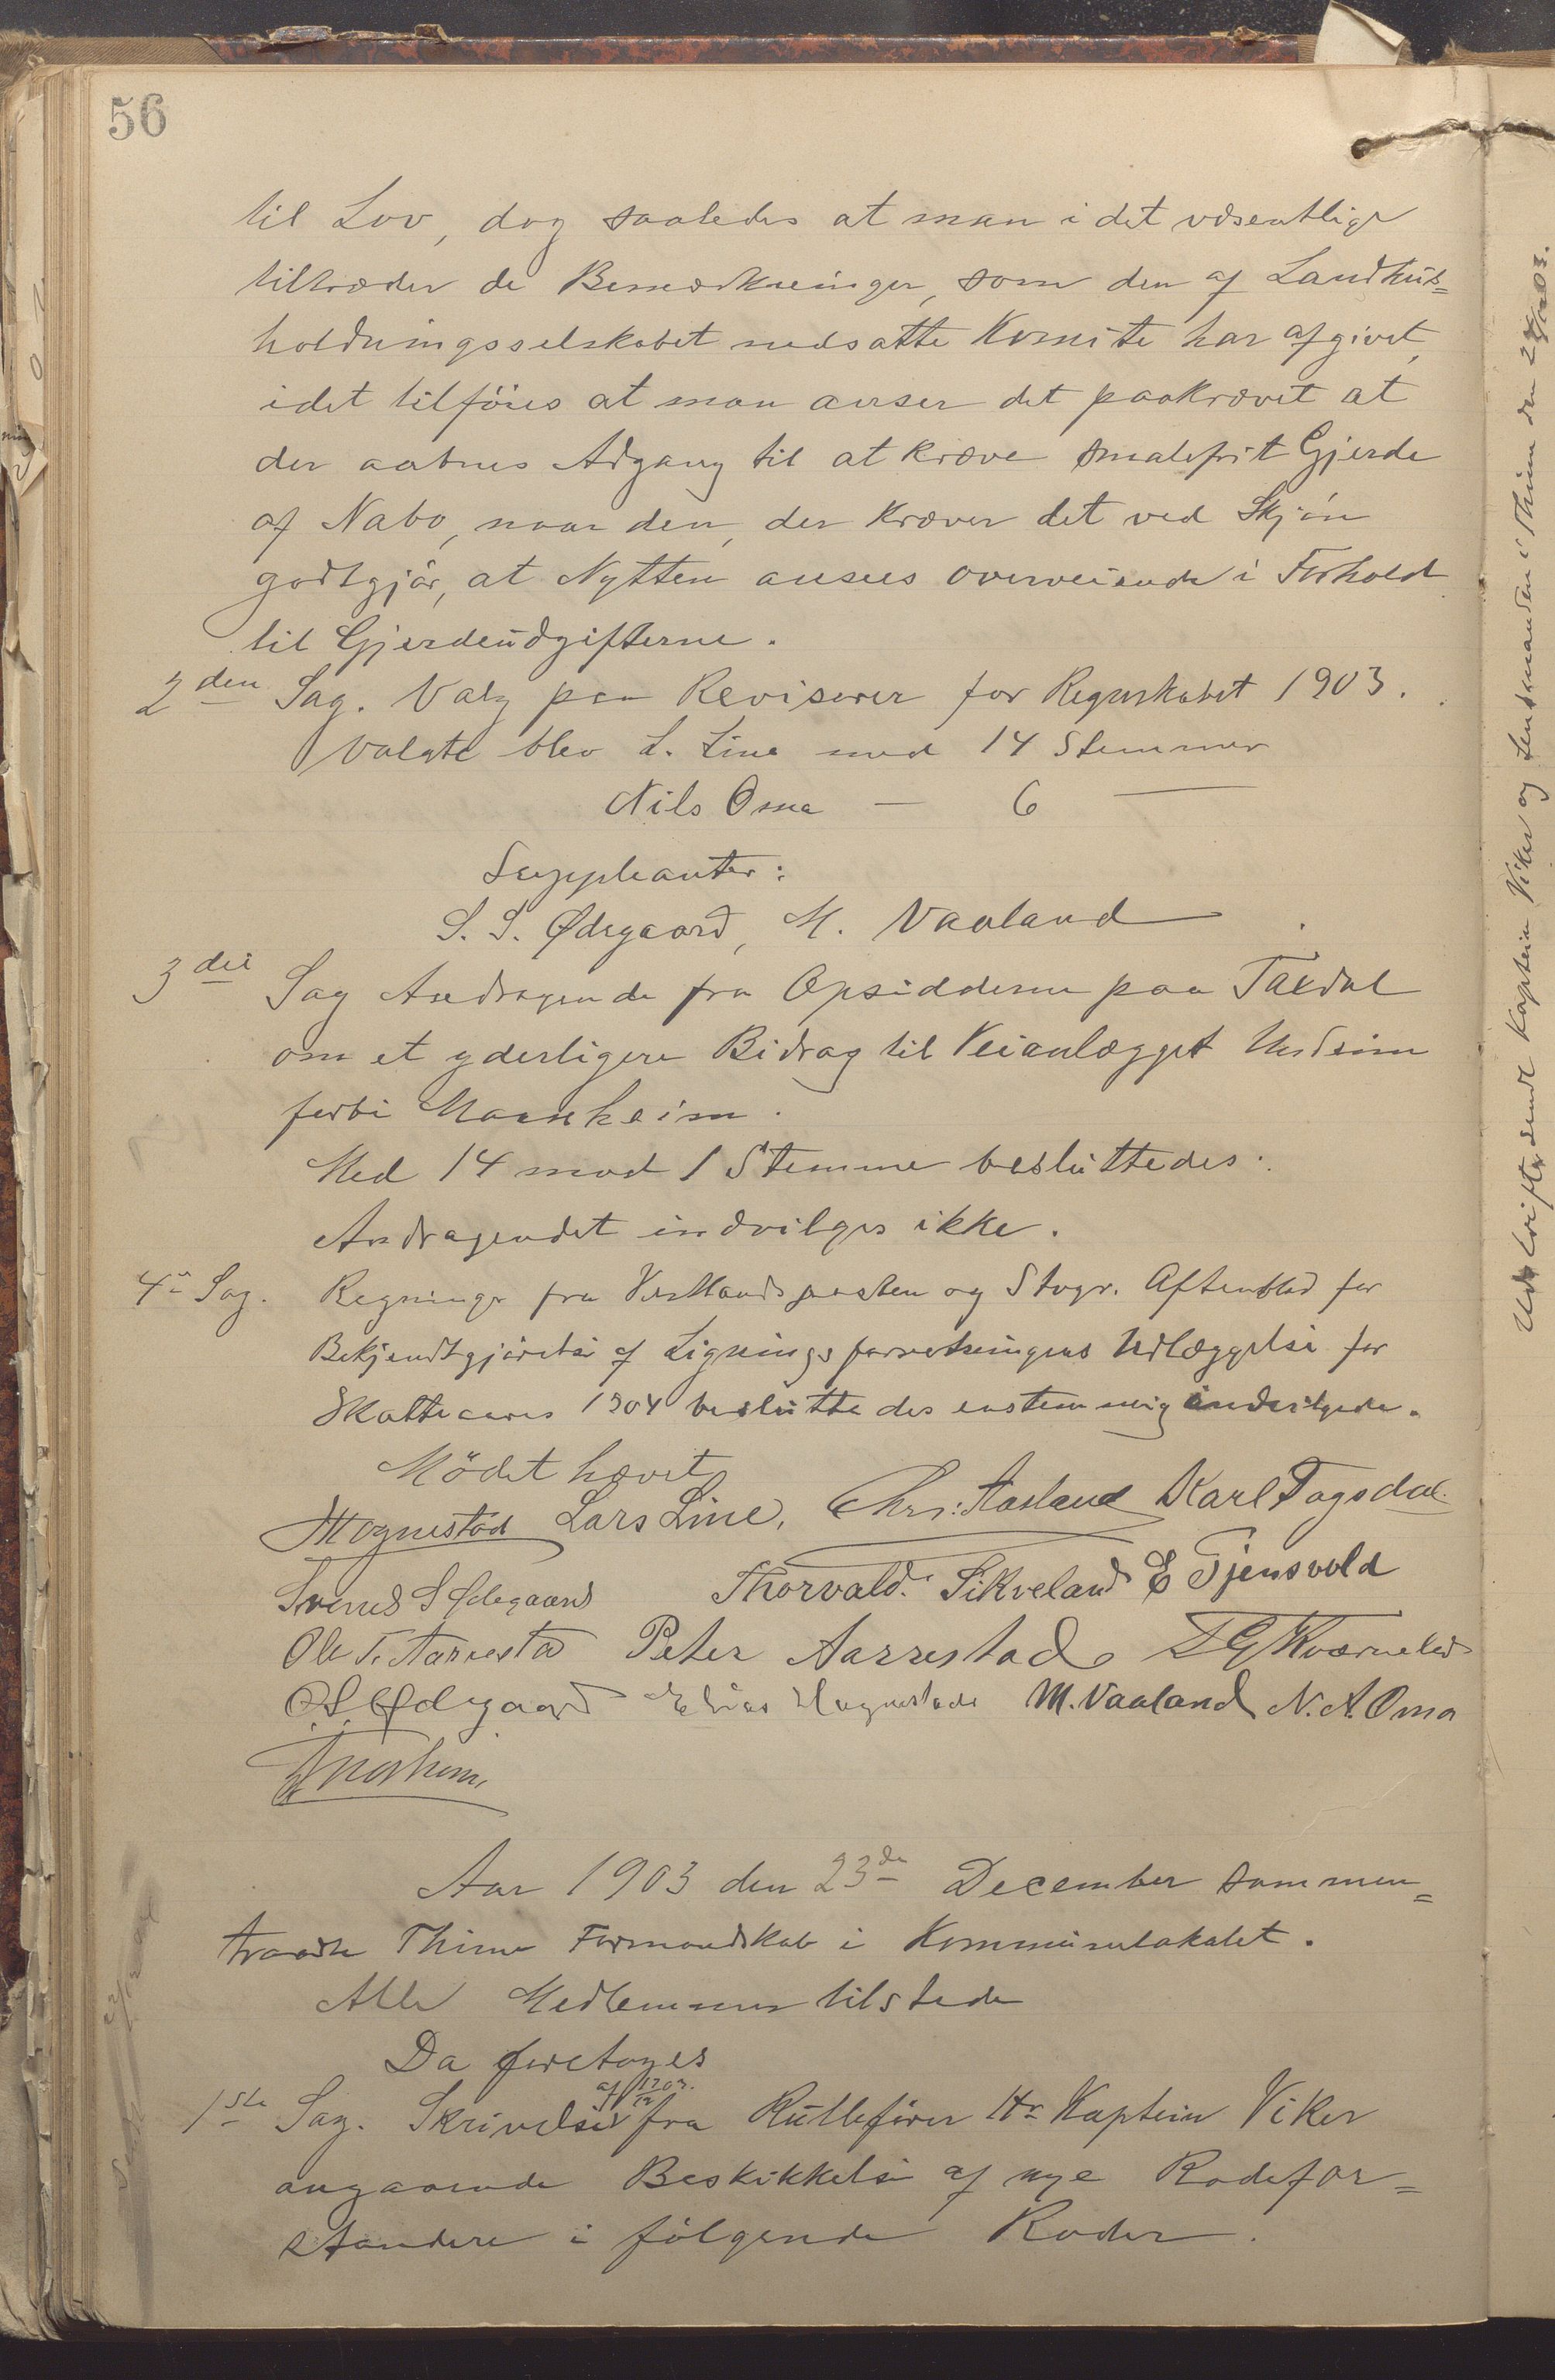 56
til Lov, dog saaledes at man i det væsentlige
tiltræder de Bemærkninger, som den af Landhus=
holdningsselskabet nedsatte Komite har afgivet,
idet tilföies at man anser det paakrævet at
der aabnes Adgang til at kræve smalefrit Gjerde
af Nabo, naar den, der kræver det ved Skjön
godtgjör, at Nytten ansees overveiende i Forhold
til Gjerdeudgifterne.
2den Sag. Valg paa Revisorer for Regnskabet 1903.
Valgte blev L. Line med 14 Stemmer
Nils Oma — 6 —
Suppleanter:
S. S. Ødegaard, M. Vaaland
3die Sag Andragende fra Opsidderne paa Taxdal
om et yderligere Bidrag til Veianlægget Undeim
forbi Mannheim.
Med 14 mod 1 Stemme besluttedes:
Andragendet indvilges ikke.
4de Sag. Regninger fra Vestlandsposten og Stvgr. Aftenblad for
Bekjendtgjörelse af Ligningsforretningens Udlæggelse for
Skatteaaret 1904 besluttedes enstemmig indvilgede.
Mödet hævet
Hognestad Lars Line. Chr: Aasland Karl Tagsdal.
Svend S Ødegaard Thorvald. Sikveland E Tjensvold
Ole T. Aarrestad Peter Aarrestad T G Kværneland
O. S. Ødegaard Elias Hognestad M. Vaaland N. A. Oma
Aar 1903 den 23de December sammen=
traadte Thime Formandskab i Kommunelokalet.
Alle Medlemmer tilstede
Da foretoges
1ste Sag. Skrivelse af 17/12 03. fra Rulleförer Hr Kaptein Viker
angaaende Beskikkelse af nye Rodefor=
standere i fölgende Roder.
Udskrift sendt Kaptein Viker og Lensmanden i Thime den